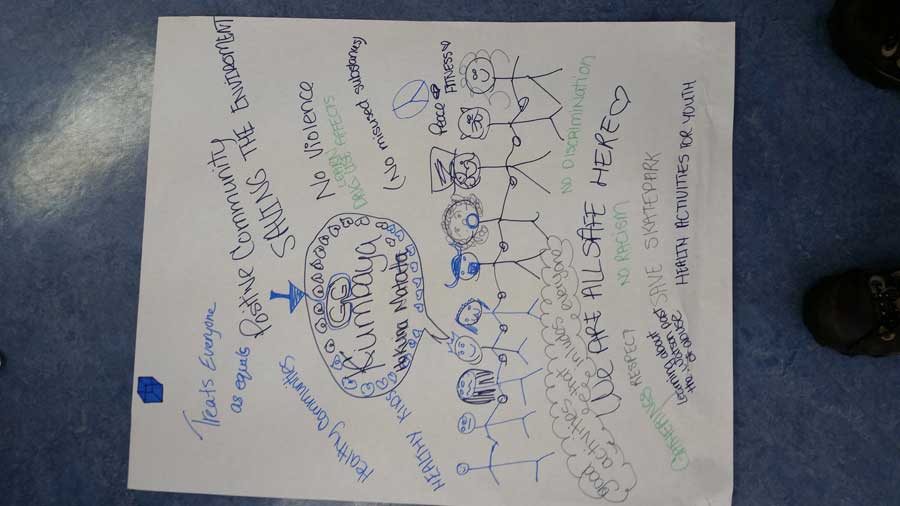 Treats Everyone
as equals
Positive Community
SAVING THE ENVIROMENT
Healthy Communities
No Violence
DRUG USE AFFECTS
(No misused substances)
GG
Kumbaya
Hakuna Matata
HEALTHY KIDS
Peace
FITNESS
NO DISCRIMINATION
Good activities
activities that involves everyone
WE ARE ALL SAFE HERE
RESPECT
NO RACISM
GATHERINGS
SAVE SKATEPARK
Learning about
the past
HEALTH ACTIVITIES FOR YOUTH